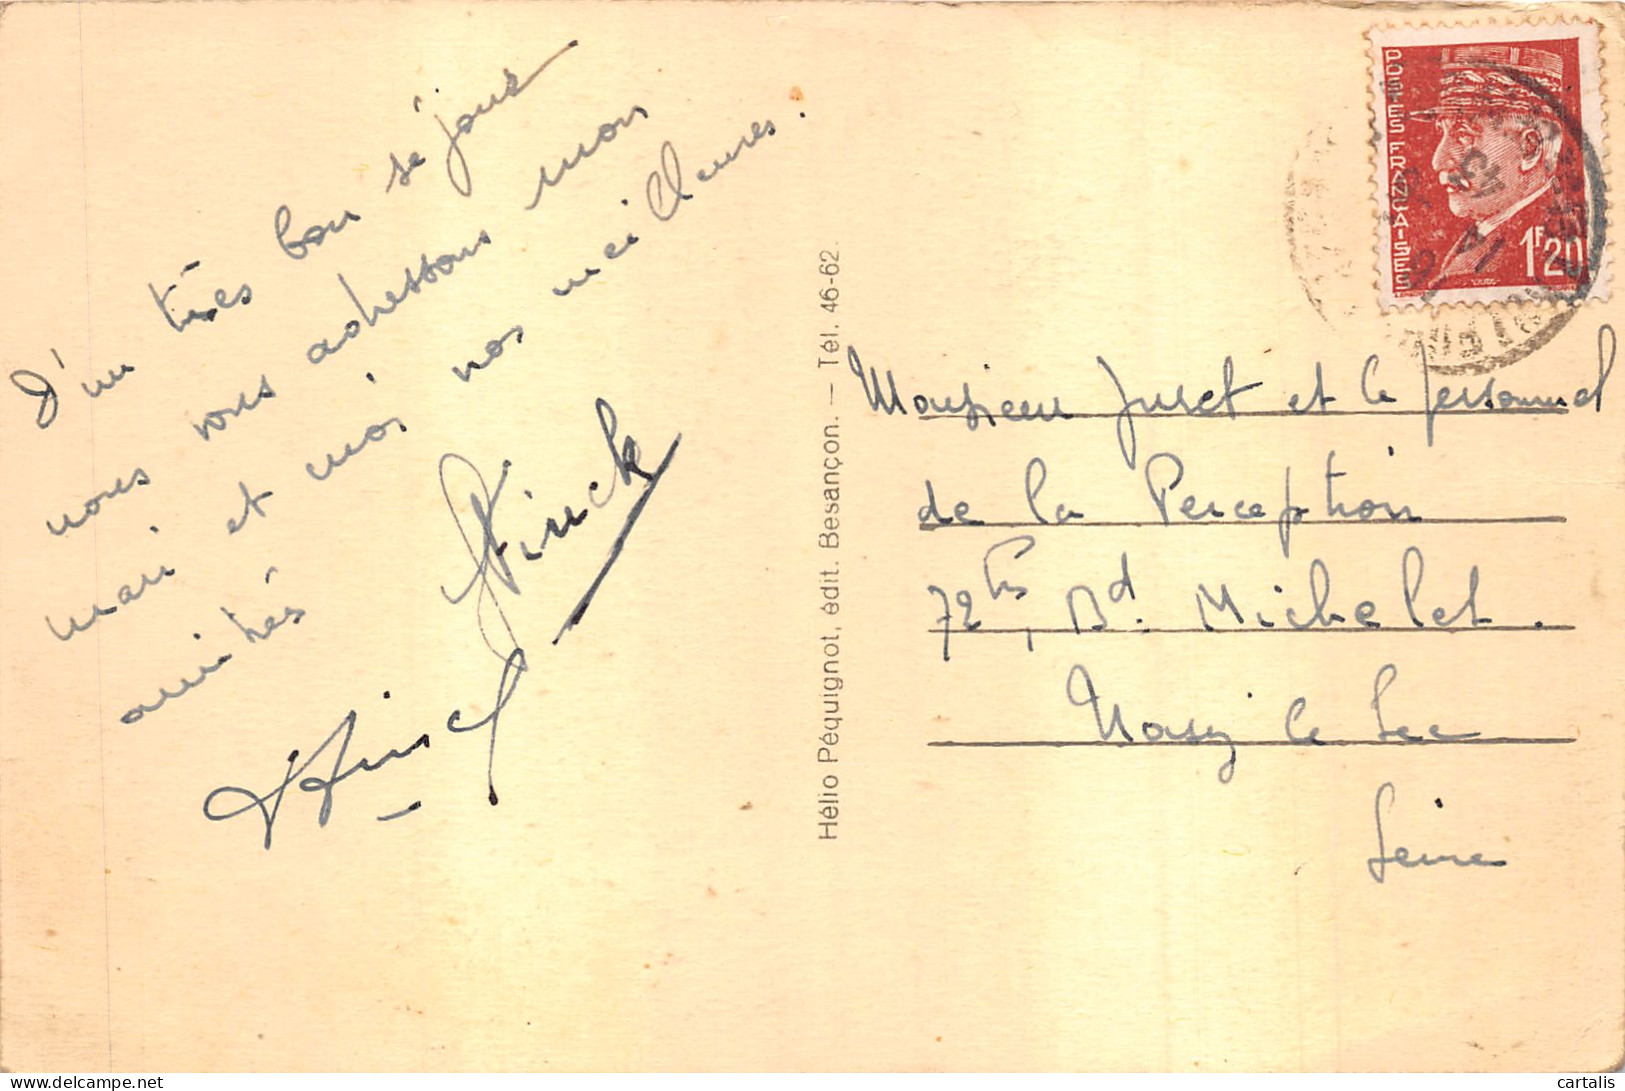 D'un très bon séjour
nous vous adressons mon
mari et moi nos meilleures
amitiés.
Hélio Péquignot, édit. Besançon. — Tél. 46-62.
POSTES FRANÇAISES
1F20
Monsieur Juret et le personnel
de la Perception
72bis, Bd. Michelet.
Noisy le Sec
Seine
cartalis
delcampe.net